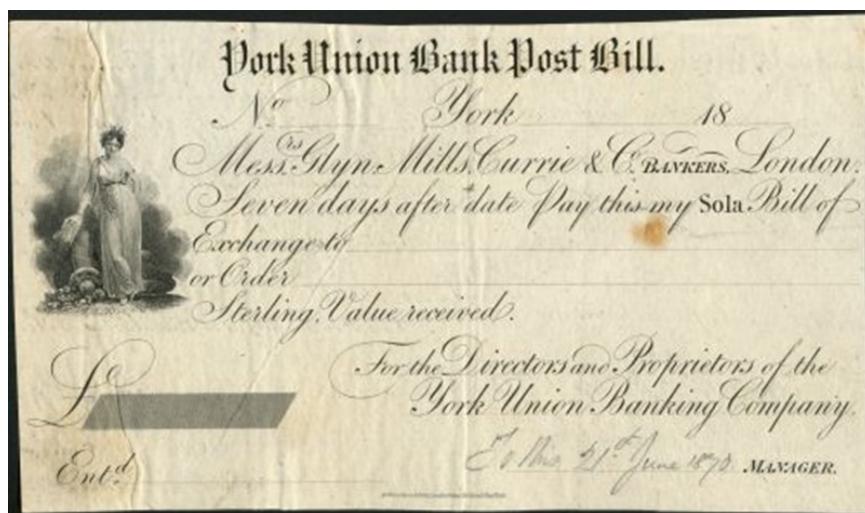 York Union Bank Post Bill.
No York 18
Messrs. Glyn, Mills, Currie & Co. BANKERS, London.
Seven days after date Pay this my Sola Bill of
Exchange to
or Order
Sterling, Value received.
For the Directors and Proprietors of the
£ York Union Banking Company.
21st June 1870 MANAGER.
Entd.